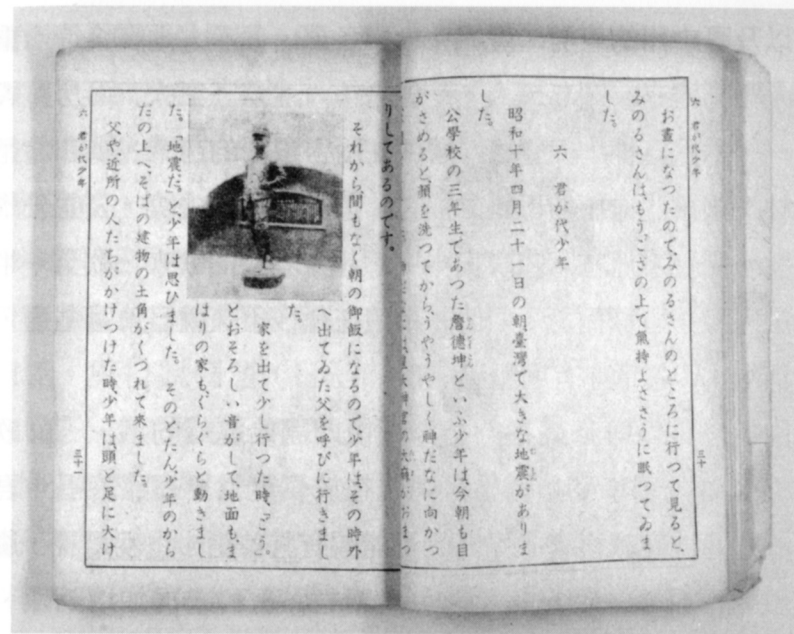 六 君が代少年
三十
お晝になつたので、みのるさんのところに行つて見ると、
みのるさんは、もう、ござの上で氣持よささうに眠つてゐま
した。
六 君が代少年
昭和十年四月二十一日の朝、臺灣で大きな地震がありま
した。
公學校の三年生であつた詹德坤といふ少年は、今朝も目
がさめると、顏を洗つてから、うやうやしく神だなに向かつ
りしてあるのです。
それから、間もなく朝の御飯になるので、少年は、その時外
へ出てゐた父を呼びに行きまし
た。
家を出て少し行つた時、「ごう。」
とおそろしい音がして、地面も、ま
はりの家も、ぐらぐらと動きまし
た。「地震だ。」と、少年は思ひました。そのとたん、少年のから
だの上へ、そばの建物の土角がくづれて來ました。
父や、近所の人たちがかけつけた時、少年は、頭と足に大け
六 君が代少年
三十一